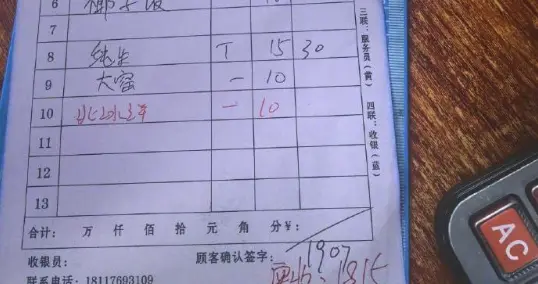 6 椰子饭
7
8 纯生 T 15 30
9 大窑 一 10
10 北冰洋 一 10
11
12
13
合计： 万 仟 佰 拾 元 角 分￥：
1907
收银员： 顾客确认签字：
1815
联系电话：18117693109
三联：服务员（黄） 四联：收银（蓝）
AC